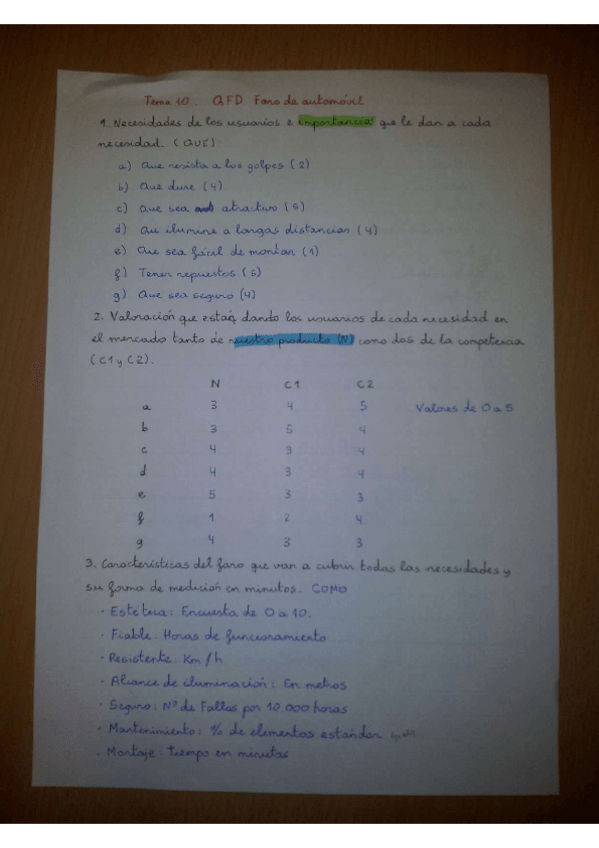 Tema 10. QFD Faro de automóvil
1. Necesidades de los usuarios e importancia que le dan a cada
necesidad. (QUÉ)
a) Que resista a los golpes (2)
b) Que dure (4)
c) Que sea atractivo (5)
d) Qu ilumine a largas distancias (4)
e) Que sea fácil de montar (1)
f) Tener repuestos (5)
g) Que sea seguro (4)
2. Valoración que están dando los usuarios de cada necesidad en
el mercado tanto de nuestro producto (N) como dos de la competencia
(C1 y C2).
N C1 C2
a 3 4 5 Valores de 0 a 5
b 3 5 4
c 4 3 4
d 4 3 4
e 5 3 3
f 1 2 4
g 4 3 3
3. Características del faro que van a cubrir todas las necesidades y
su forma de medición en minutos. COMO
· Estética: Encuesta de 0 a 10.
· Fiable: Horas de funcionamiento
· Resistente: Km/h
· Alcance de iluminación: En metros
· Seguro: Nº de Fallos por 10.000 horas
· Mantenimiento: % de elementos estándar
- Montaje: Tiempo en minutos